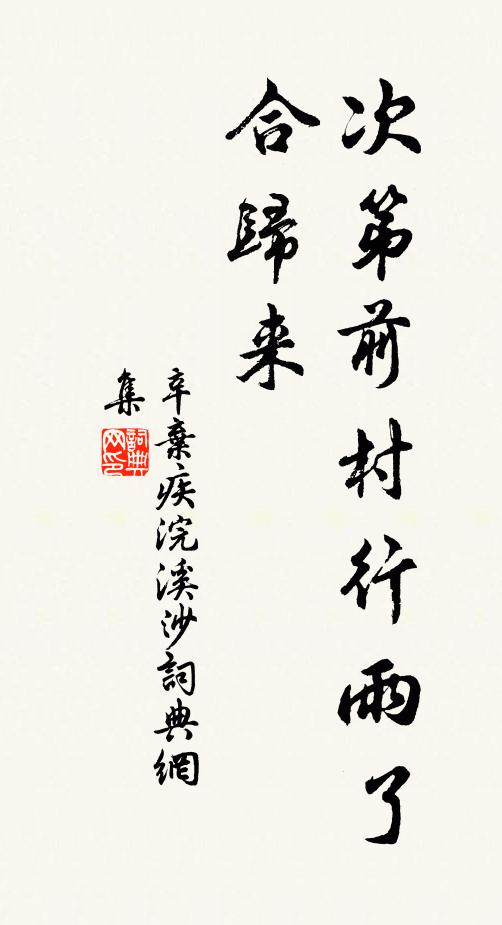 次第前村行雨了
合歸来
辛棄疾浣溪沙詞典網
集
詞典网印